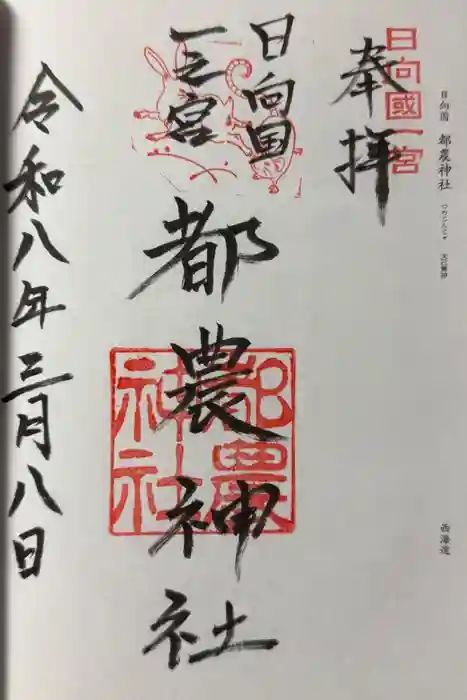 日向國一宮
日向国　都農神社
つのじんじゃ
西海道
奉拝
日向国
一之宮
都農神社
都農神社
令和八年三月八日